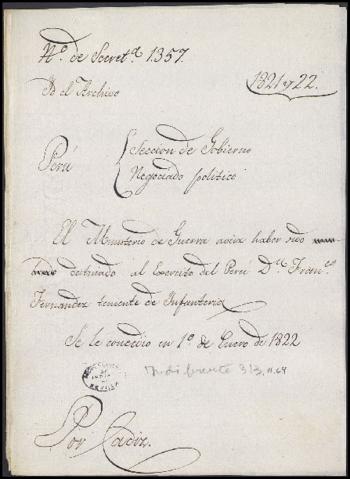 N.º de Secret.ª 1.357.
1821 y 22.
Perú
Seccion de Gobierno
Negociado politico
El Ministerio de Guerra avisa haber sido
destinado al Exercito del Perú Dn. Fran.co
Fernandez teniente de Infanteria
Se le concedio en 1º de Enero de 1822
Indiferente 313, n. 64
Por Cadiz.